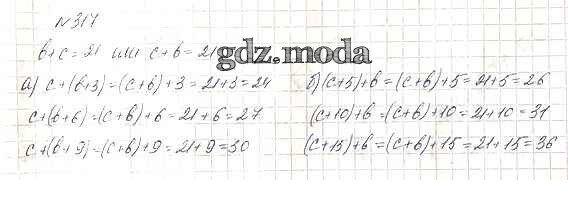 №317
b+c=21 или c+b=21
gdz.moda
а) c+(b+3)=(c+b)+3=21+3=24
б) (c+5)+b=(c+b)+5=21+5=26
c+(b+6)=(c+b)+6=21+6=27
(c+10)+b=(c+b)+10=21+10=31
c+(b+9)=(c+b)+9=21+9=30
(c+15)+b=(c+b)+15=21+15=36